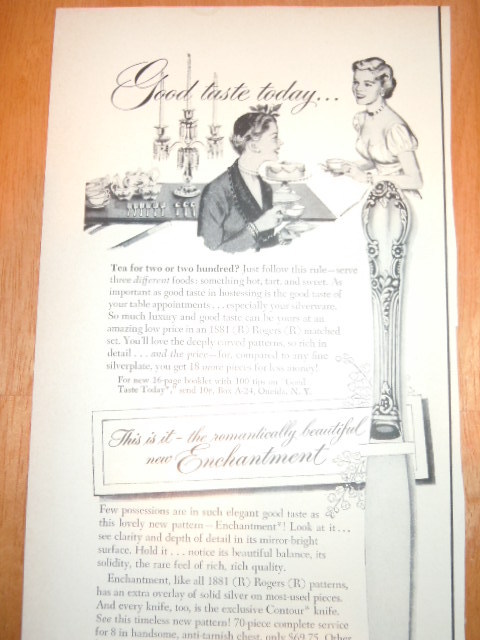 Good taste today...
Tea for two or two hundred? Just follow this rule—serve
three different foods: something hot, tart, and sweet. As
important as good taste in hostessing is the good taste of
your table appointments . . . especially your silverware.
So much luxury and good taste can be yours at an
amazing low price in an 1881 (R) Rogers (R) matched
set. You'll love the deeply carved patterns, so rich in
detail . . . and the price—for, compared to any fine
silverplate, you get 18 more pieces for less money!
For new 16-page booklet with 100 tips on "Good
Taste Today", send 10¢, Box A-24, Oneida, N. Y.
This is it - the romantically beautiful
new Enchantment
Few possessions are in such elegant good taste as
this lovely new pattern—Enchantment*! Look at it . . .
see clarity and depth of detail in its mirror-bright
surface. Hold it . . . notice its beautiful balance, its
solidity, the rare feel of rich, rich quality.
Enchantment, like all 1881 (R) Rogers (R) patterns,
has an extra overlay of solid silver on most-used pieces.
And every knife, too, is the exclusive Contour* knife.
See this timeless new pattern! 70-piece complete service
for 8 in handsome, anti-tarnish chest, only $69.75. Other